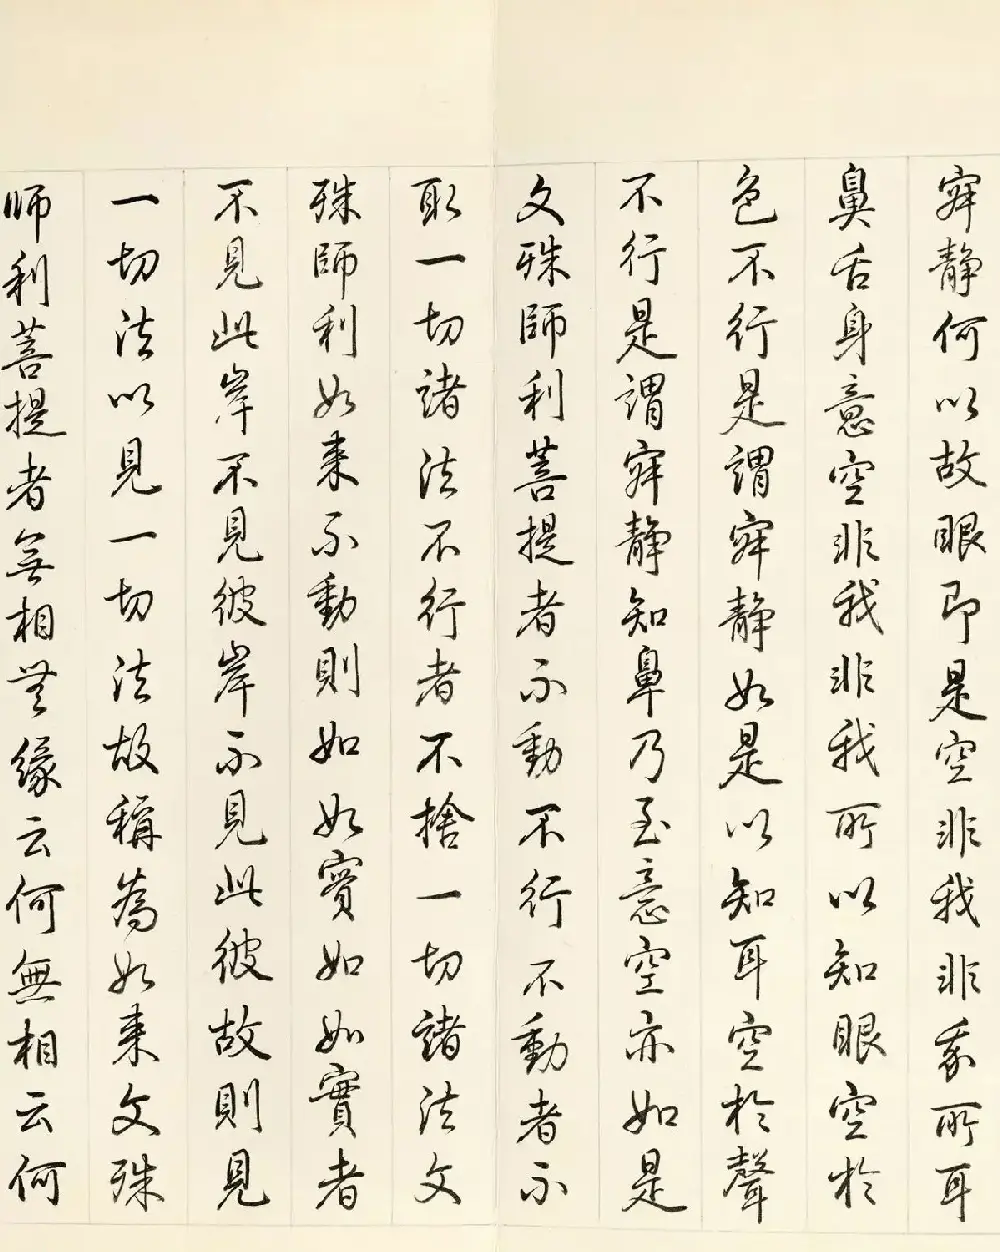 寂静何以故眼即是空非我非我所耳
鼻舌身意空非我非我所以知眼空於
色不行是謂寂静如是以知耳空於聲
不行是謂寂静知鼻乃至意空亦如是
文殊師利菩提者不動不行不動者不
取一切諸法不行者不捨一切諸法文
殊師利如来不動則如如實如如實者
不見此岸不見彼岸不見此彼故則見
一切法以見一切法故稱為如来文殊
师利菩提者无相無缘云何無相云何